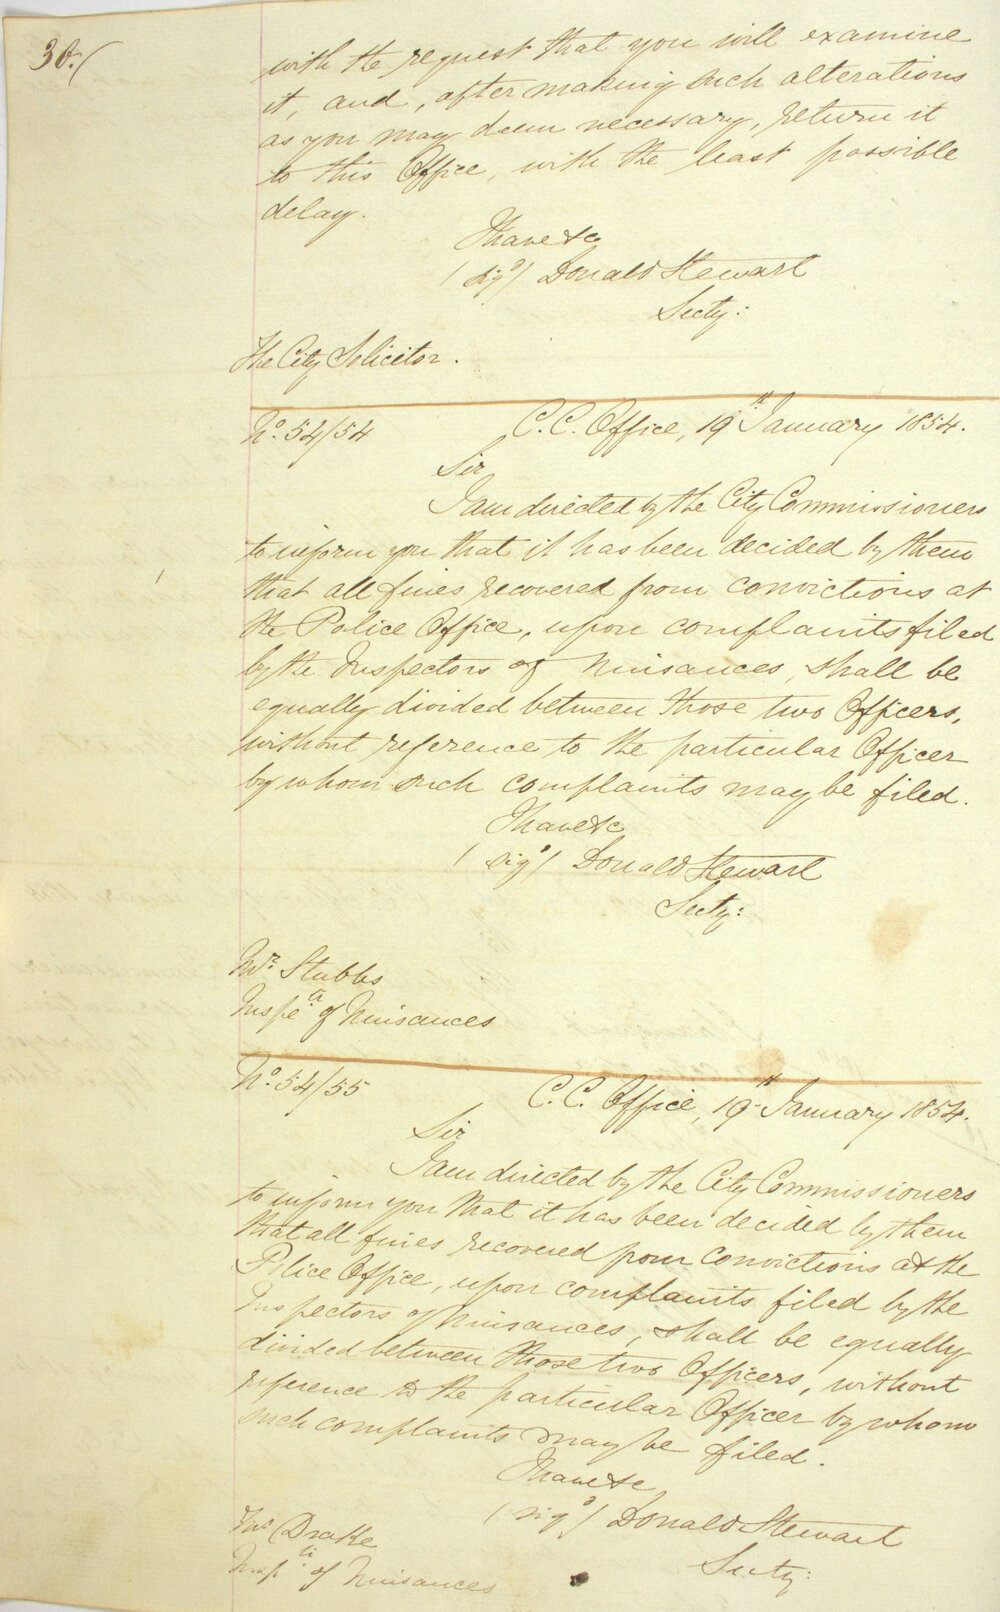 30.(
with the request that you will examine
it, and, after making such alterations
as you may deem necessary, return it
to this Office, with the least possible
delay.
I have &c
(sigd) Donald Stewart
Secty:
The City Solicitor.
No. 54/54
C. C. Office, 19th January 1854.
Sir
I am directed by the City Commissioners
to inform you that it has been decided by them
that all fines recovered from convictions at
the Police Office, upon complaints filed
by the Inspectors of Nuisances, shall be
equally divided between those two Officers,
without reference to the particular Officer
by whom such complaints may be filed.
I have &c
(sigd) Donald Stewart
Secty:
Mr. Stubbs
Inspector of Nuisances
No. 54/55
C. C. Office, 19th January 1854.
Sir
I am directed by the City Commissioners
to inform you that it has been decided by them
that all fines recovered from convictions at the
Police Office, upon complaints filed by the
Inspectors of Nuisances, shall be equally
divided between those two Officers, without
reference to the particular Officer by whom
such complaints may be filed.
I have &c
(sigd) Donald Stewart
Secty:
Mr Drake
Insptr of Nuisances